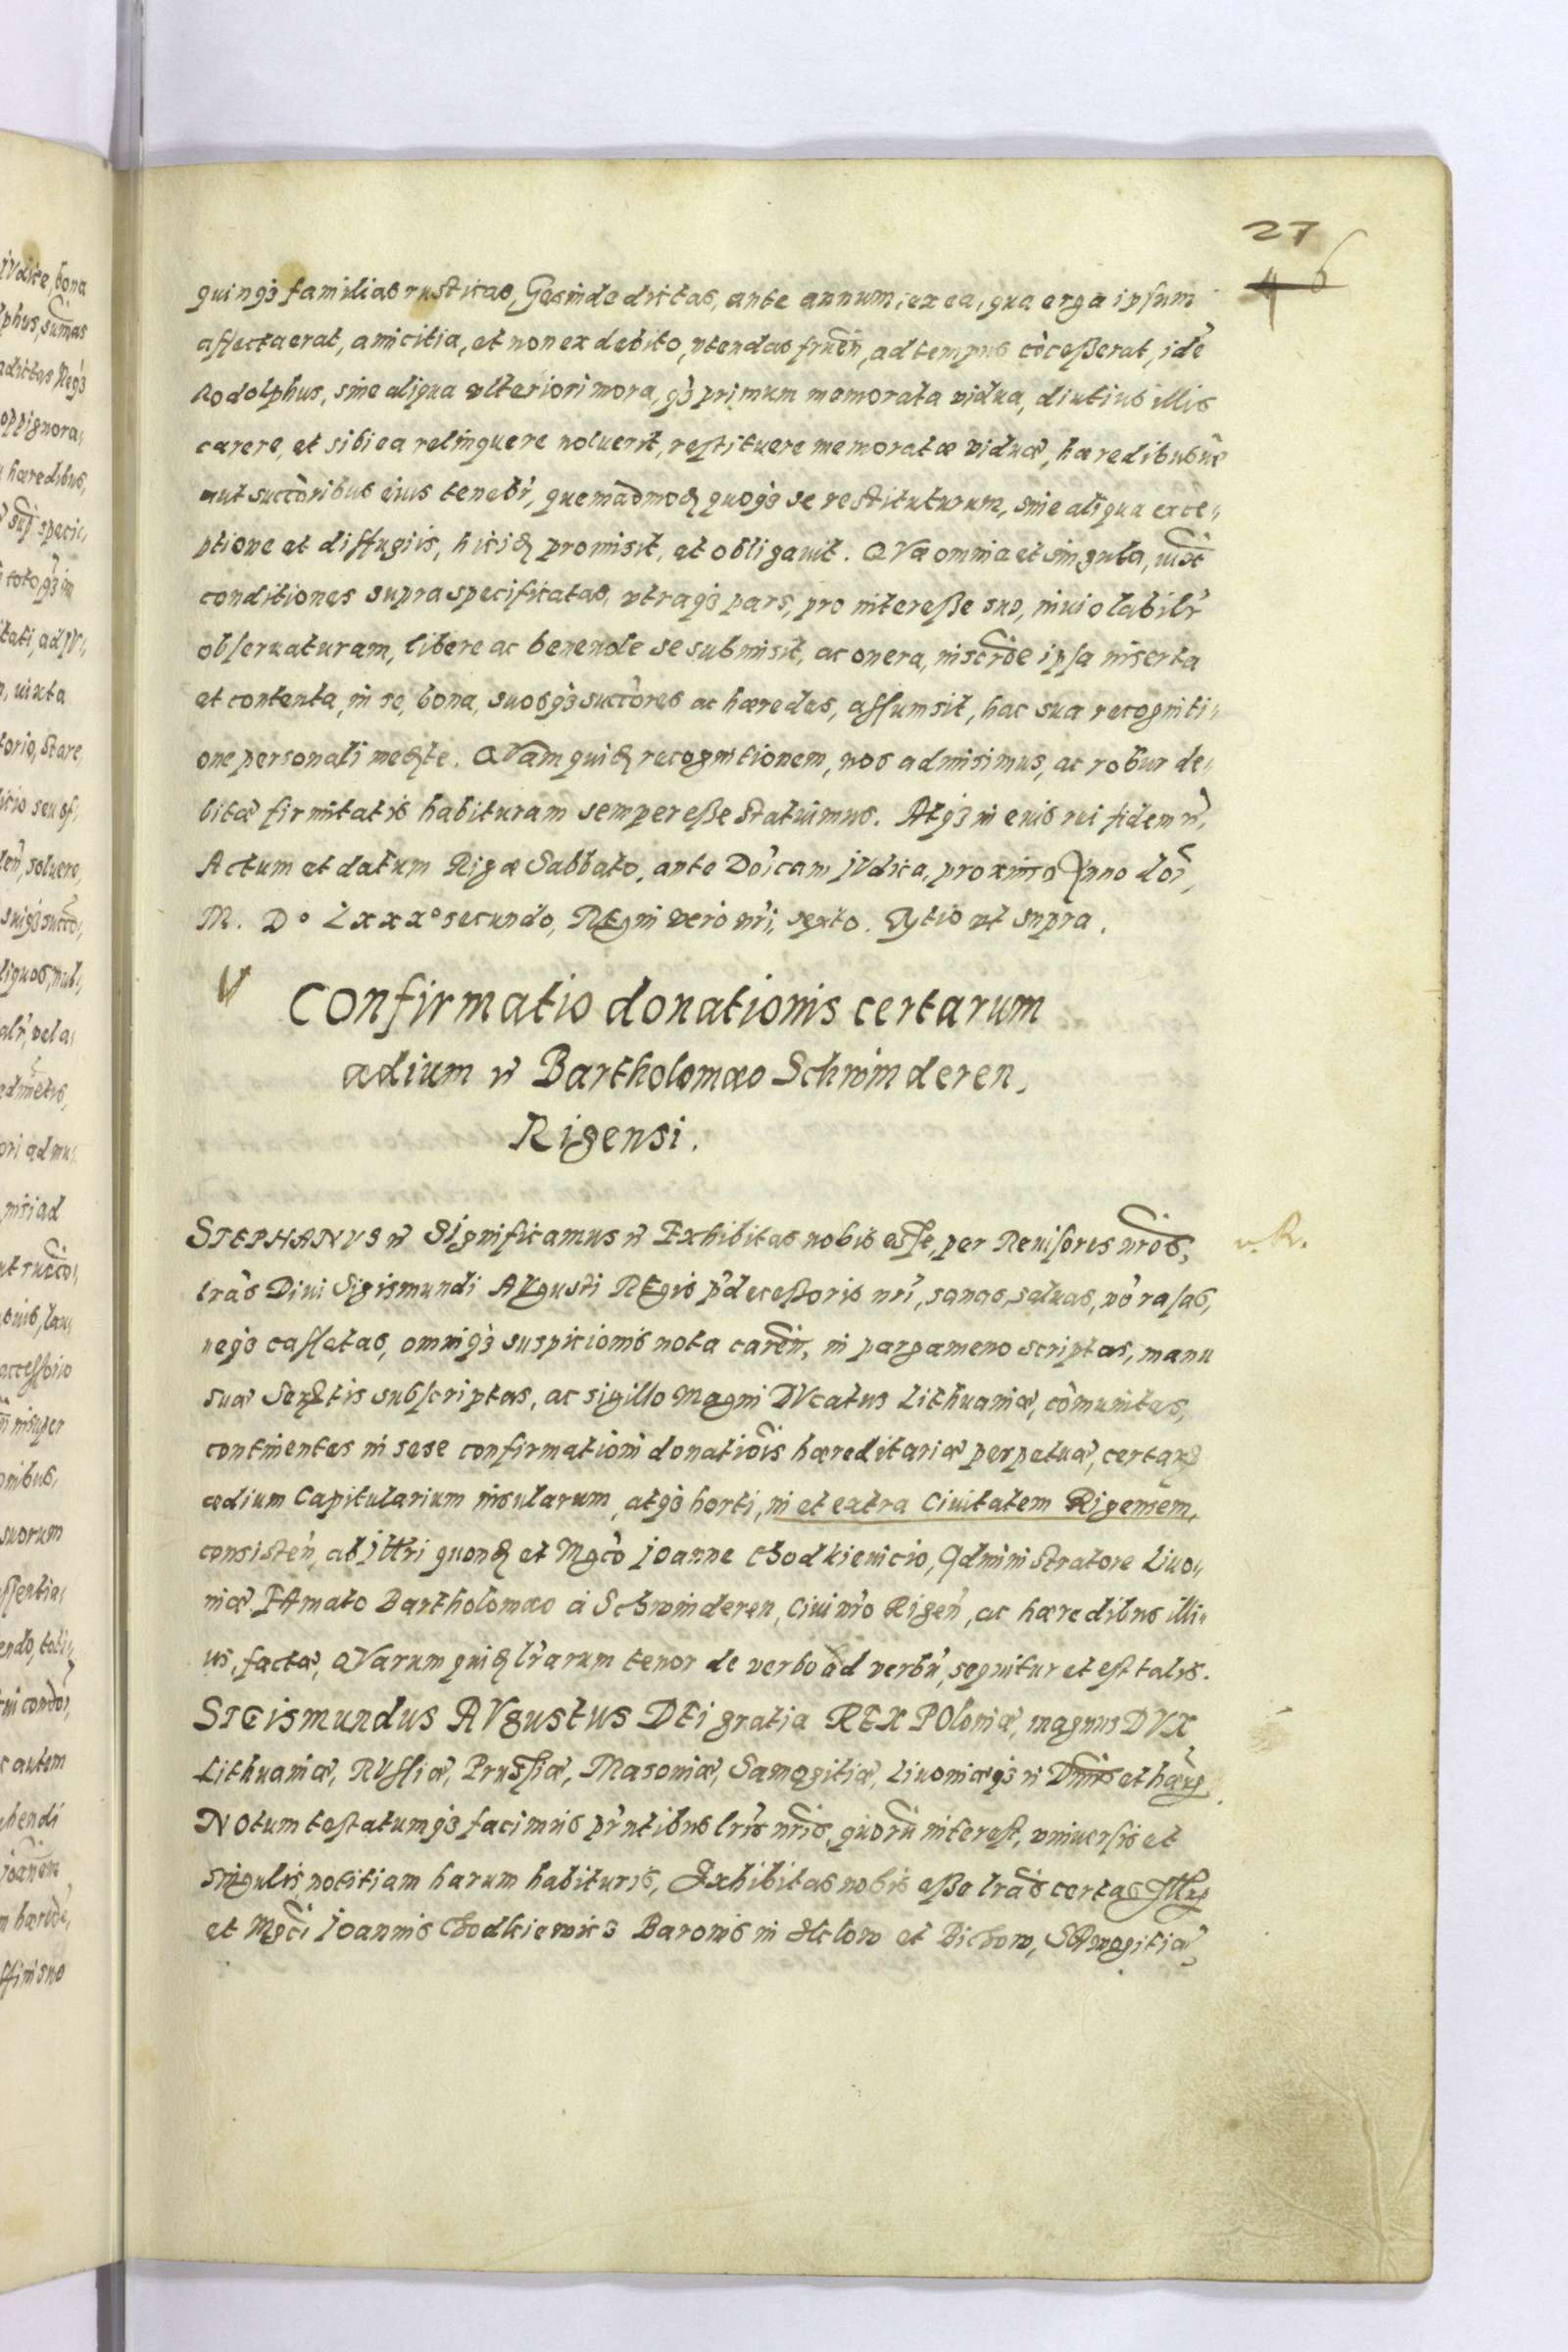 27
46
quinqȝ familias rusticas, Gesinde dictas, ante annum, ex ea, qua erga ipsum
affecta erat, amicitia, et non ex debito, vtendas fruen̄, ad tempus cōcesserat, idē
Rodolphus, sine aliqua vlteriori mora, qȝ primum memorata vidua, diutius illis
carere, et sibi ea relinquere noluerit, restituere memoratæ viduæ, hæredibus
aut succōribus eius tenebr̄, quemadmoꝫ quoqȝ se restituturum, sine aliqua exce„
ptione et diffugiis, hiciꝫ promisit, et obligauit. QVæ omnia et singula, iuxt̄
conditiones supra specificatas, vtraqȝ pars, pro interesse suo, inuiolabilr̄
obseruaturam, libere ac beneuole se submisit, ac onera, inscr̄ōe ipsa inserta
et contenta, in se, bona, suosqȝ succōres ac hæredes, assumsit, hac sua recogniti„
one personali meꝫte. QVam quiꝫ recognitionem, nos admisimus, ac robur de„
bitæ firmitatis habituram semper esse statuimus. Atqȝ in eius rei fidem rc̄,
Actum et datum Rigæ Sabbato, ante Doīcam jVdica, proximo Anno doī,
M. D° Lxxx° secundo, REgni vero nr̄i, sexto. vt supra.
COnfirmatio donationis certarum
ædium rc̄ Bartholomæo Schwinderen,
Rigensi.
STEPHANVS rc̄ SIgnificamus rc̄ Exhibitas nobis esse, per Reuisores nr̄os,
v. R.
lr̄as Diui Sigismundi AVgusti REgis pr̄decessoris nr̄i, sanas, saluas, nō rasas,
neqȝ cassatas, omniqȝ suspicionis nota caren̄, in pargameno scriptas, manu
suæ subscriptas, ac sigillo Magni DVcatus Lithuaniæ, cōmunitas,
continentes in sese confirmationem̄ donatiōis hæreditariæ perpetuæ, certaꝝ
ædium Capitularium insularum, atqȝ horti, in et extra Ciuitatem Rigensem,
consisten̄, ab jlltri quonꝫ et Mgcō joanne Chodkieuicio, Administratore Liuo„
niæ FAmato Bartholomæo à Schwinderen, Ciui nr̄o Rigen̄, ac hæredibus illi„
us, factæ, QVarum quiꝫ lr̄arum tenor de verbo ad verbū, sequitur et est talis.
SIGismundus AVgustus DEi gratia REX POloniæ, magnus DVX
Lithuaniæ, RVssiæ, Prussiæ, Masouiæ, Samogitiæ, Liuoniæqȝ rc̄ Dn̄us et hæꝝ
NOtum testatumqȝ facimus pr̄ntibus lr̄is nr̄is, quorū interest, vniuersis et
singulis, notitiam harum habituris, Exhibitas nobis esse lr̄as certas Jllꝝ
et Mgci joannis Chodkiewicz Baronis in Sclow et Bichow, SAmogitiæ,